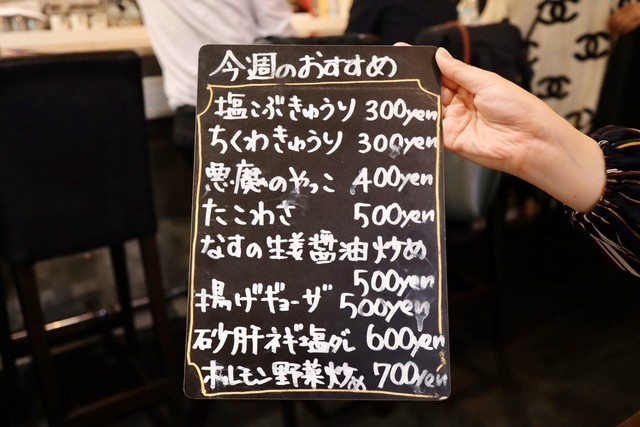 今週のおすすめ
塩こぶきゅうり 300yen
ちくわきゅうり 300yen
悪魔のやっこ 400yen
たこわさ 500yen
なすの生姜醤油炒め
500yen
揚げギョーザ 500yen
砂肝ネギ塩ダレ 600yen
ホルモン野菜炒め 700yen